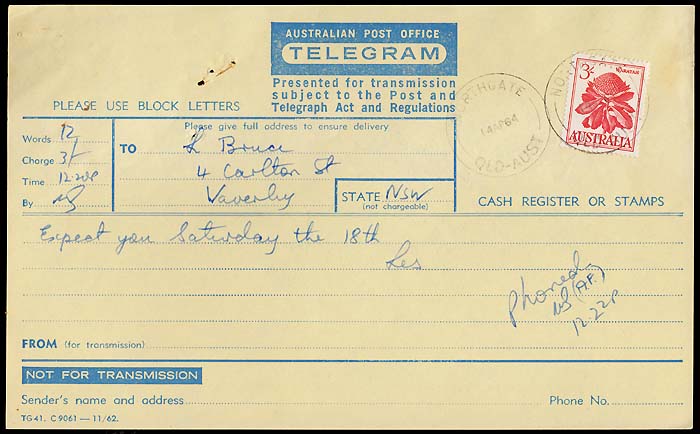 AUSTRALIAN POST OFFICE
TELEGRAM
Presented for transmission
subject to the Post and
Telegraph Act and Regulations
PLEASE USE BLOCK LETTERS
Words 12
Charge 3/-
Time 12.20p
By
Please give full address to ensure delivery
TO
L Bruce
4 Carlton St
Waverley
STATE NSW
(not chargeable)
RTHGATE
14AP64
QLD-AUST
3/-
WARATAH
AUSTRALIA
CASH REGISTER OR STAMPS
Expect you Saturday the 18th
Les
phoned
(A.F.)
12.22p
FROM (for transmission)
NOT FOR TRANSMISSION
Sender's name and address
Phone No.
TG 41. C 9061 — 11/62.